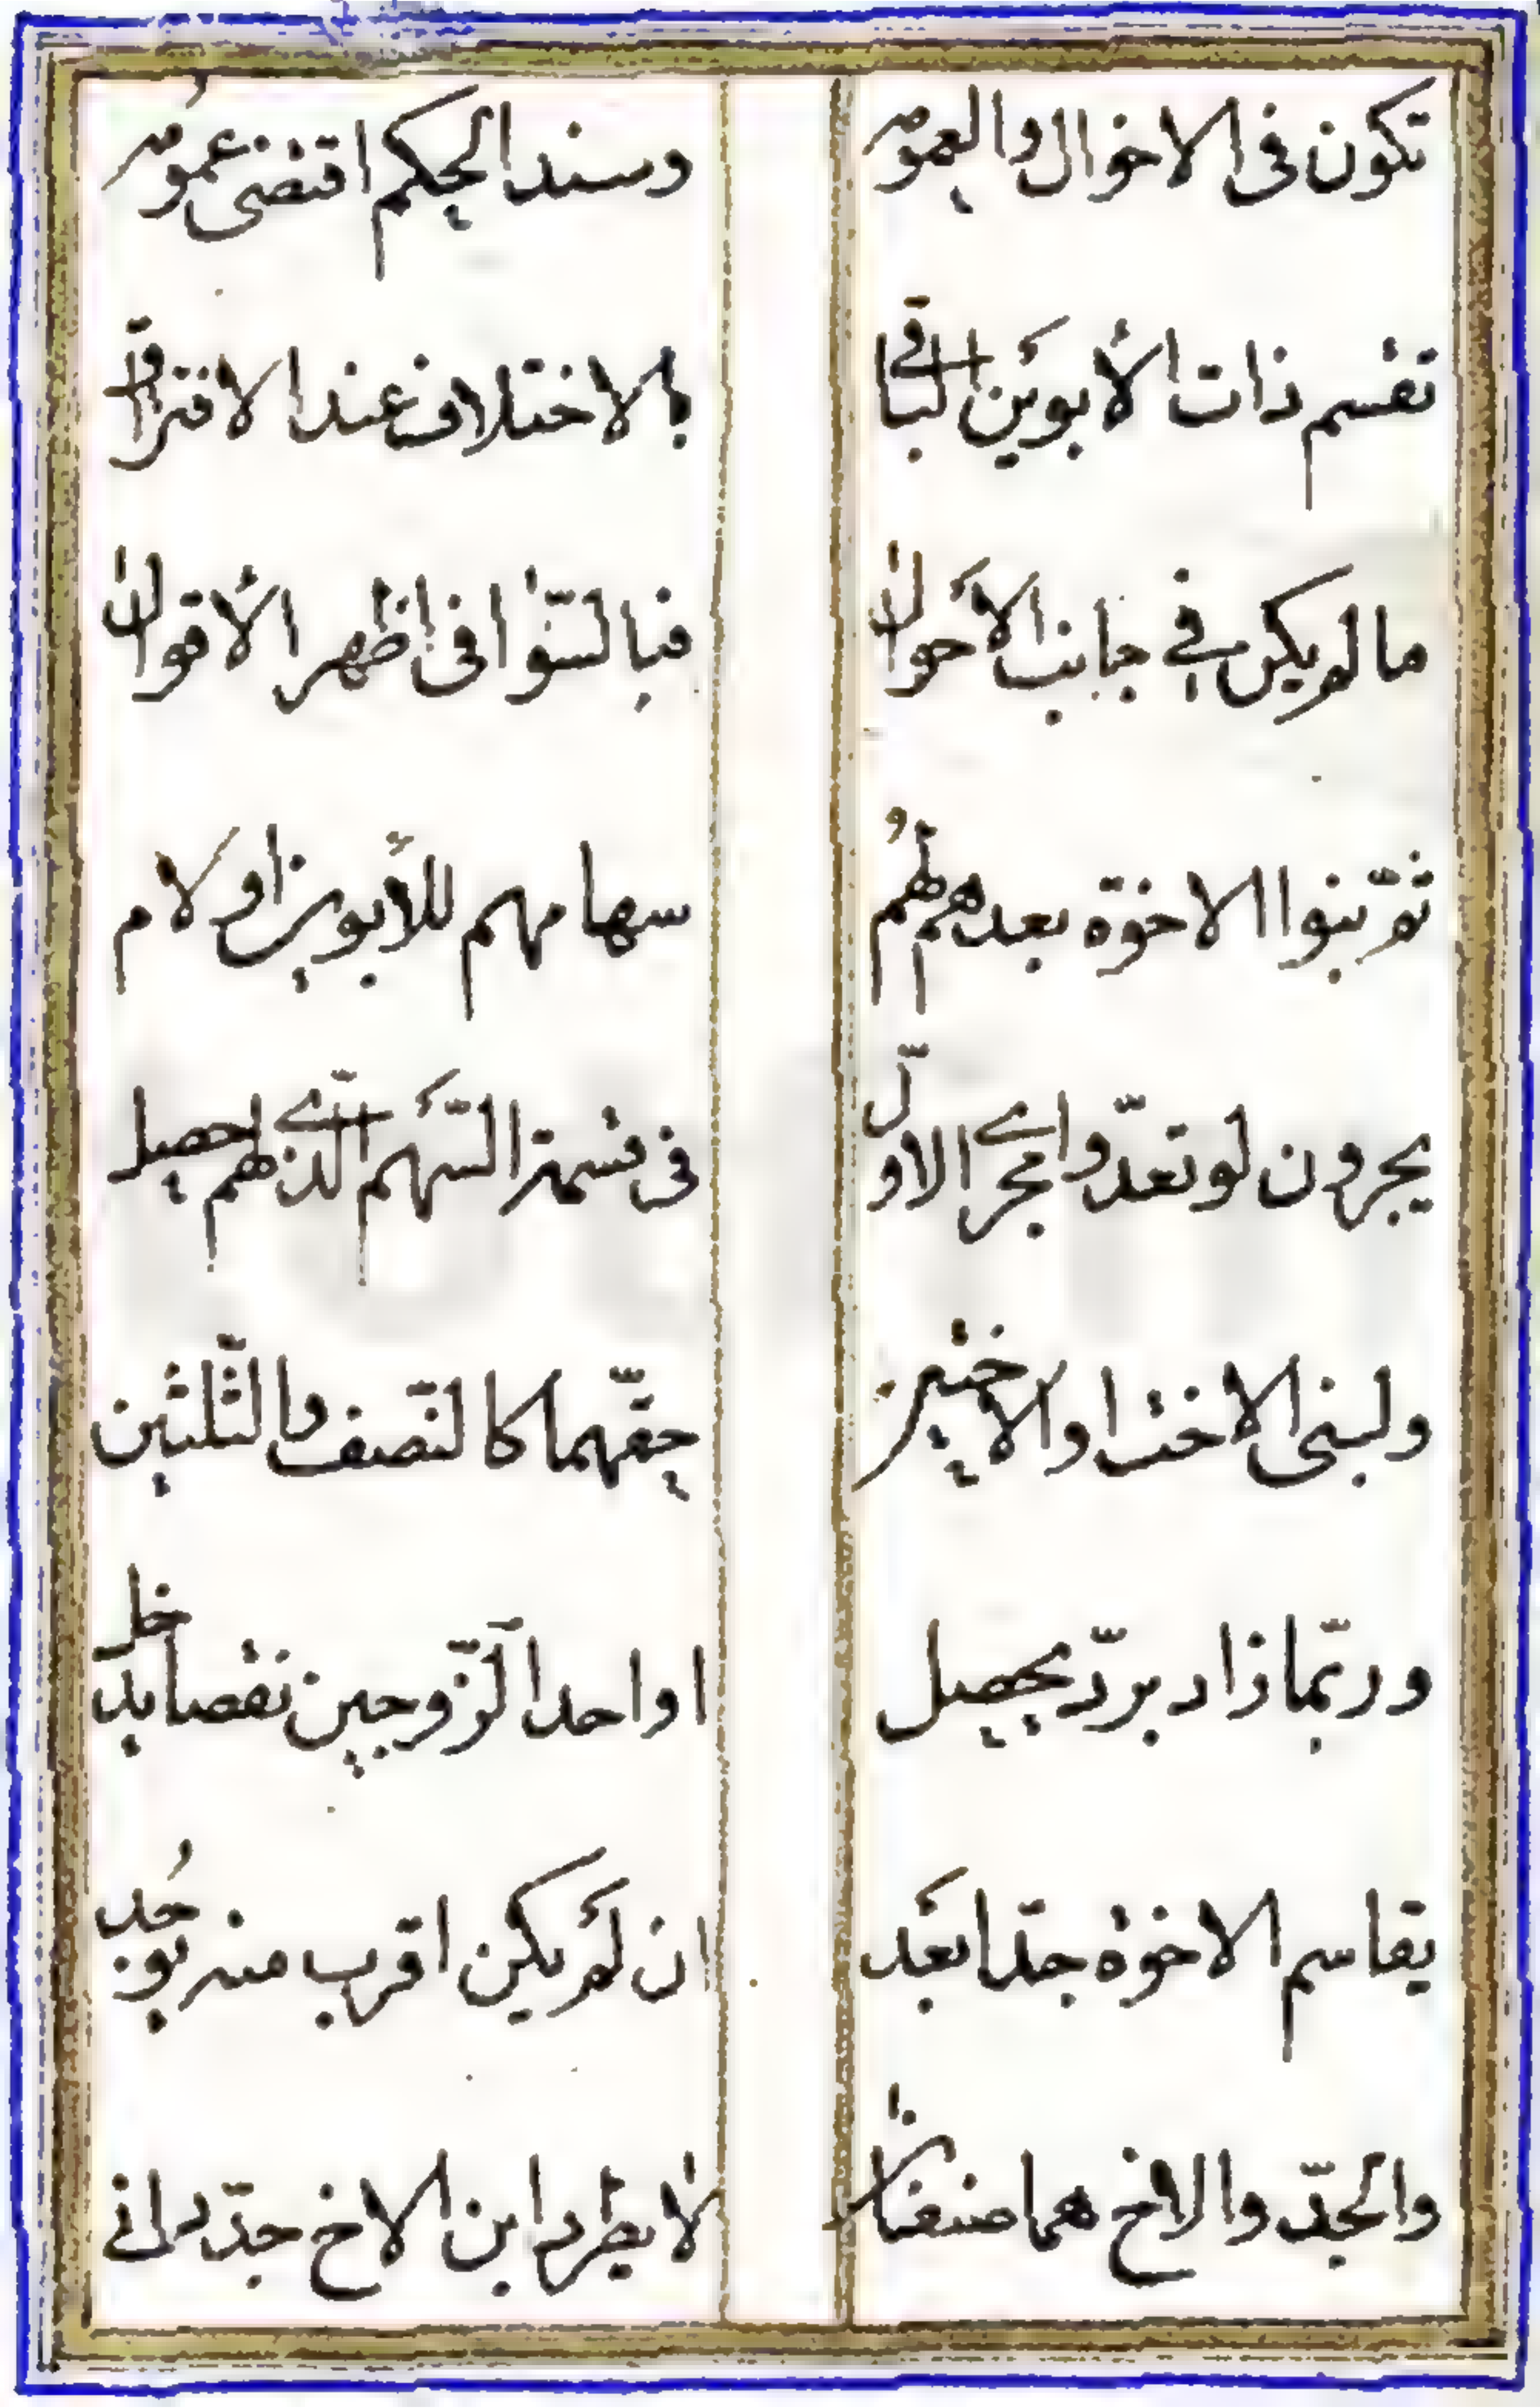 تكون فى الاخوال والعموم وسند الحكم اقتضى عموم
تقسم ذات الأبوين الباقى بالاختلاف عند الافتراق
ما لم يكن في جانب الأحوال فبالسّوا فى اظهر الأقوال
ثمّ بنوا الاخوّة بعدهم لهمُ سهامهم للأبوين او لام
يجرون لو تعدّوا مجرے الاوّل فى قسمة السّهم الّذے لهم يحصل
ولبنى الاخت او الاختين حقّهما كالنّصف والثّلثين
وربّما زاد بردّ يحصل او احد الزّوجين نقصا يدخل
يقاسم الاخوة جدّا بَعُد ان لم يكن اقرب منه يوجد
والجدّ والاخ هما صنفان لا يطرد ابن الاخ جدّ دانى